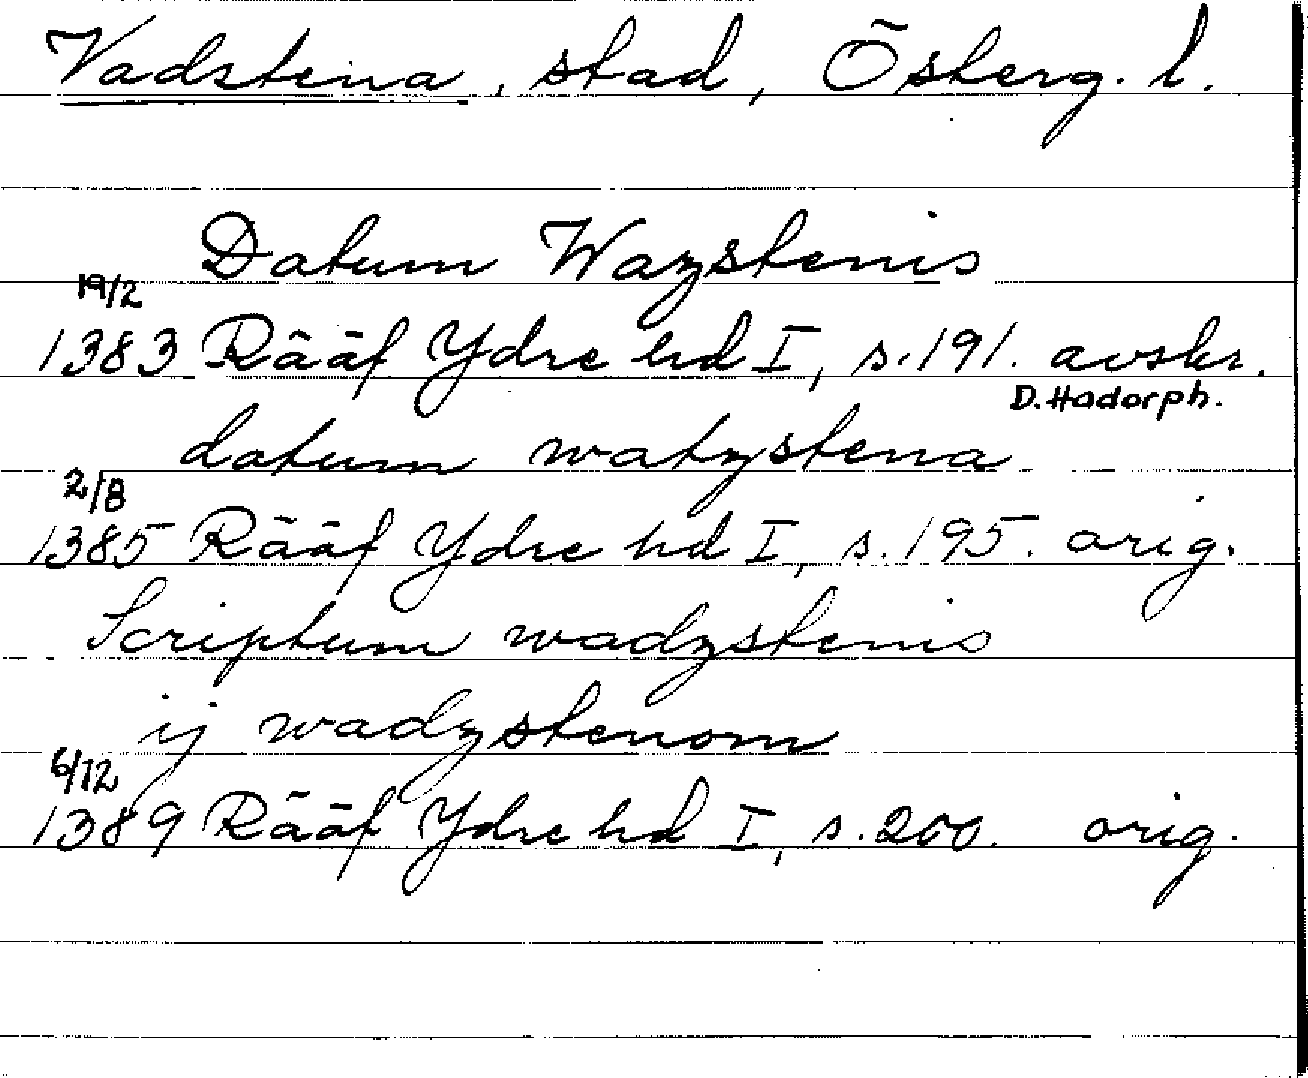 Vadstena, stad, Österg. l.
Datum Wazstenis
19/2
1383 Rääf Ydre hd I, s. 191. avskr.
D. Hadorph.
datum watzstena
2/8
1385 Rääf Ydre hd I, s. 195. orig.
Scriptum wadzstenis
ij wadzstenom
6/12
1389 Rääf Ydre hd I, s. 200. orig.